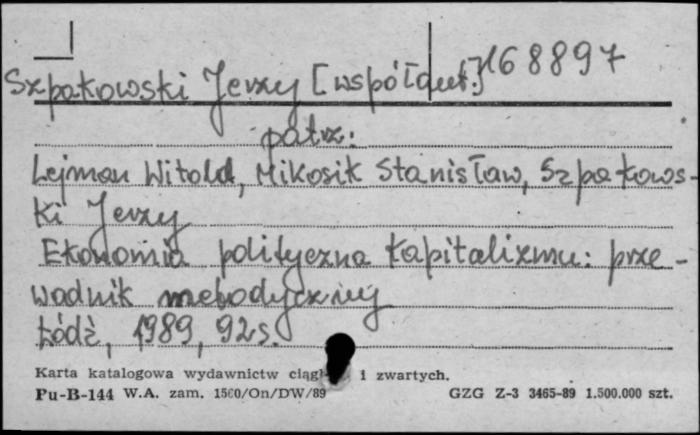 168897
Szpakowski Jerzy [współaut.]
patrz:
Lejman Witold, Mikosik Stanisław, Szpakows-
ki Jerzy
Ekonomia polityczna kapitalizmu: prze-
wodnik metodyczny
Łódź, 1989, 92 s.
Karta katalogowa wydawnictw ciągł i zwartych.
Pu-B-144 W.A. zam. 1560/On/DW/89 GZG Z-3 3465-89 1.500.000 szt.